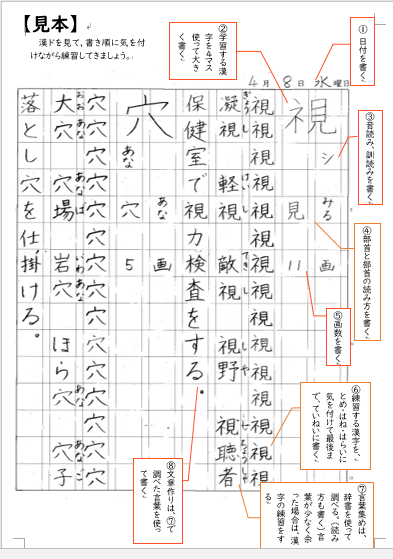 【見本】
漢ドを見て，書き順に気を付
けながら練習してきましょう。
①日付を書く
②学習する漢
字を４マス
使って大き
く書く
③音読み、訓読みを書く
④部首と部首の読み方を書く
⑤画数を書く
⑥練習する漢字を、
とめ・はね・はらいに
気を付けて最後ま
で、ていねいに書く
⑦言葉集めは、
辞書を使って
調べる。（読み
方も書く）言
葉が少なく余
った場合は、漢
字の練習をす
る
⑧文章作りは、⑦で
調べた言葉を使っ
て書く
4月8日水曜日
視 シ みる 見 11画
視視視視視視視視視視視視視視視
凝視 ぎょうし 軽視 けいし 敵視 てきし 視野 しや 視聴者 しちょうしゃ
保健室で視力検査をする。
穴 あな 穴 あな 5画
穴穴穴穴穴穴穴穴穴穴穴穴穴穴穴
大穴 おおあな 穴場 あなば 岩穴 いわあな ほら穴 あな 穴子 あなご
落とし穴を仕掛ける。